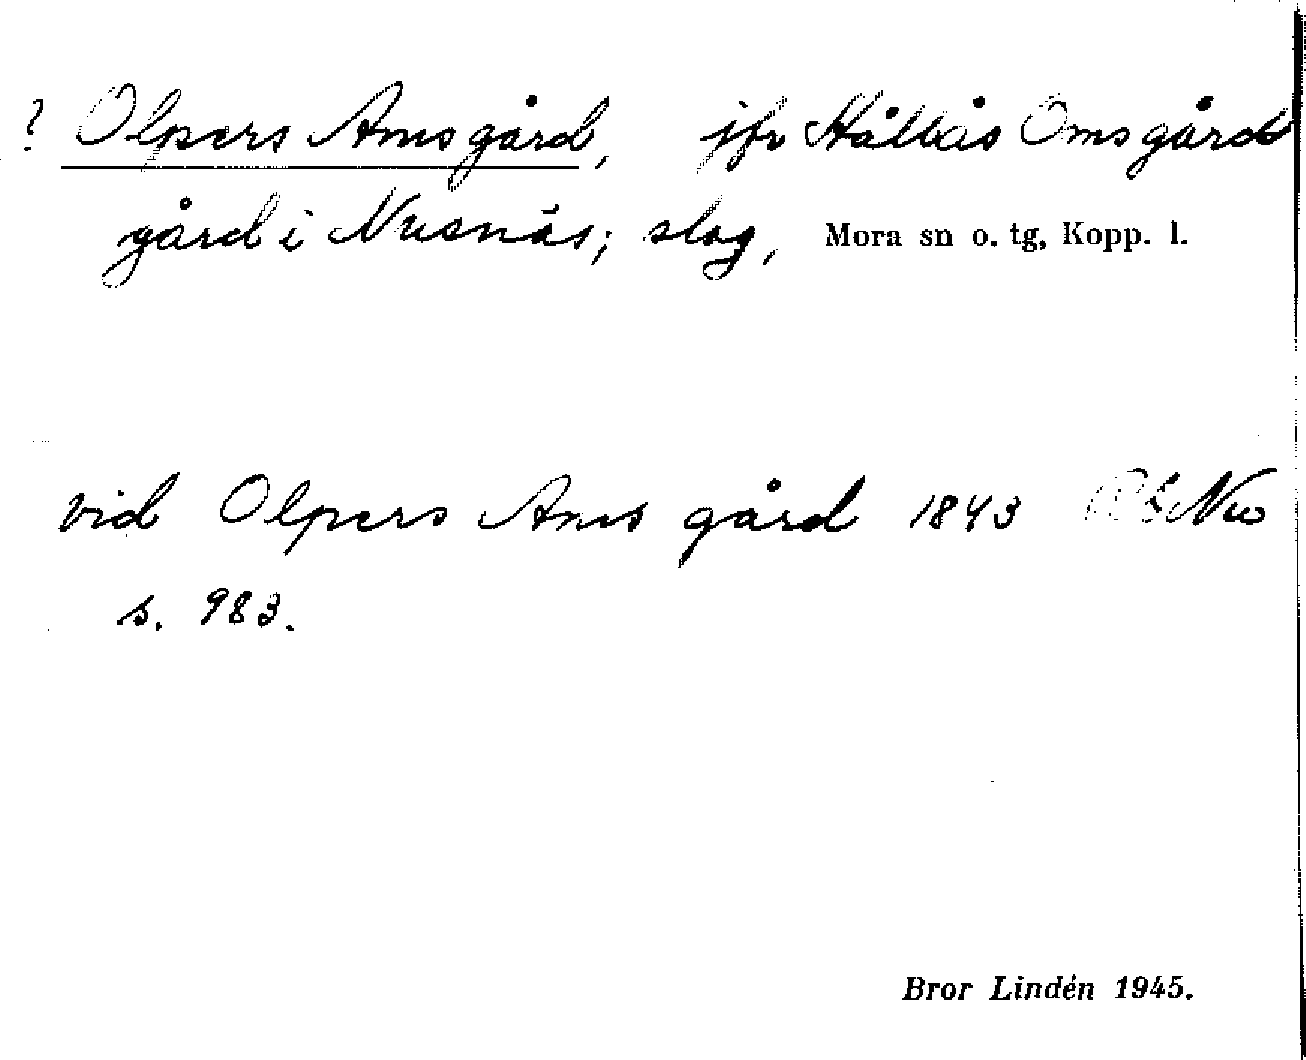 ? Olpers Ams gård, jfr Hållås Oms gård
gård i Nusnäs; slog, Mora sn o. tg, Kopp. l.
vid Olpers Ams gård 1843 Nus
s. 983.
Bror Lindén 1945.